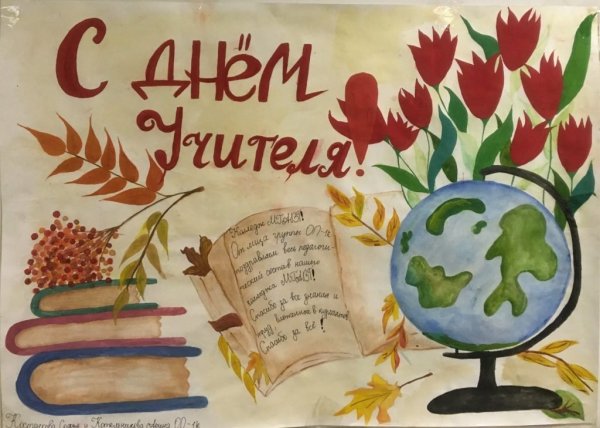 С ДНЁМ
Учителя!
Колледж
От лица группы
поздравляем весь педагоги-
ческий состав нашего
колледжа
Спасибо за все знания и
труд,
Спасибо за всё!